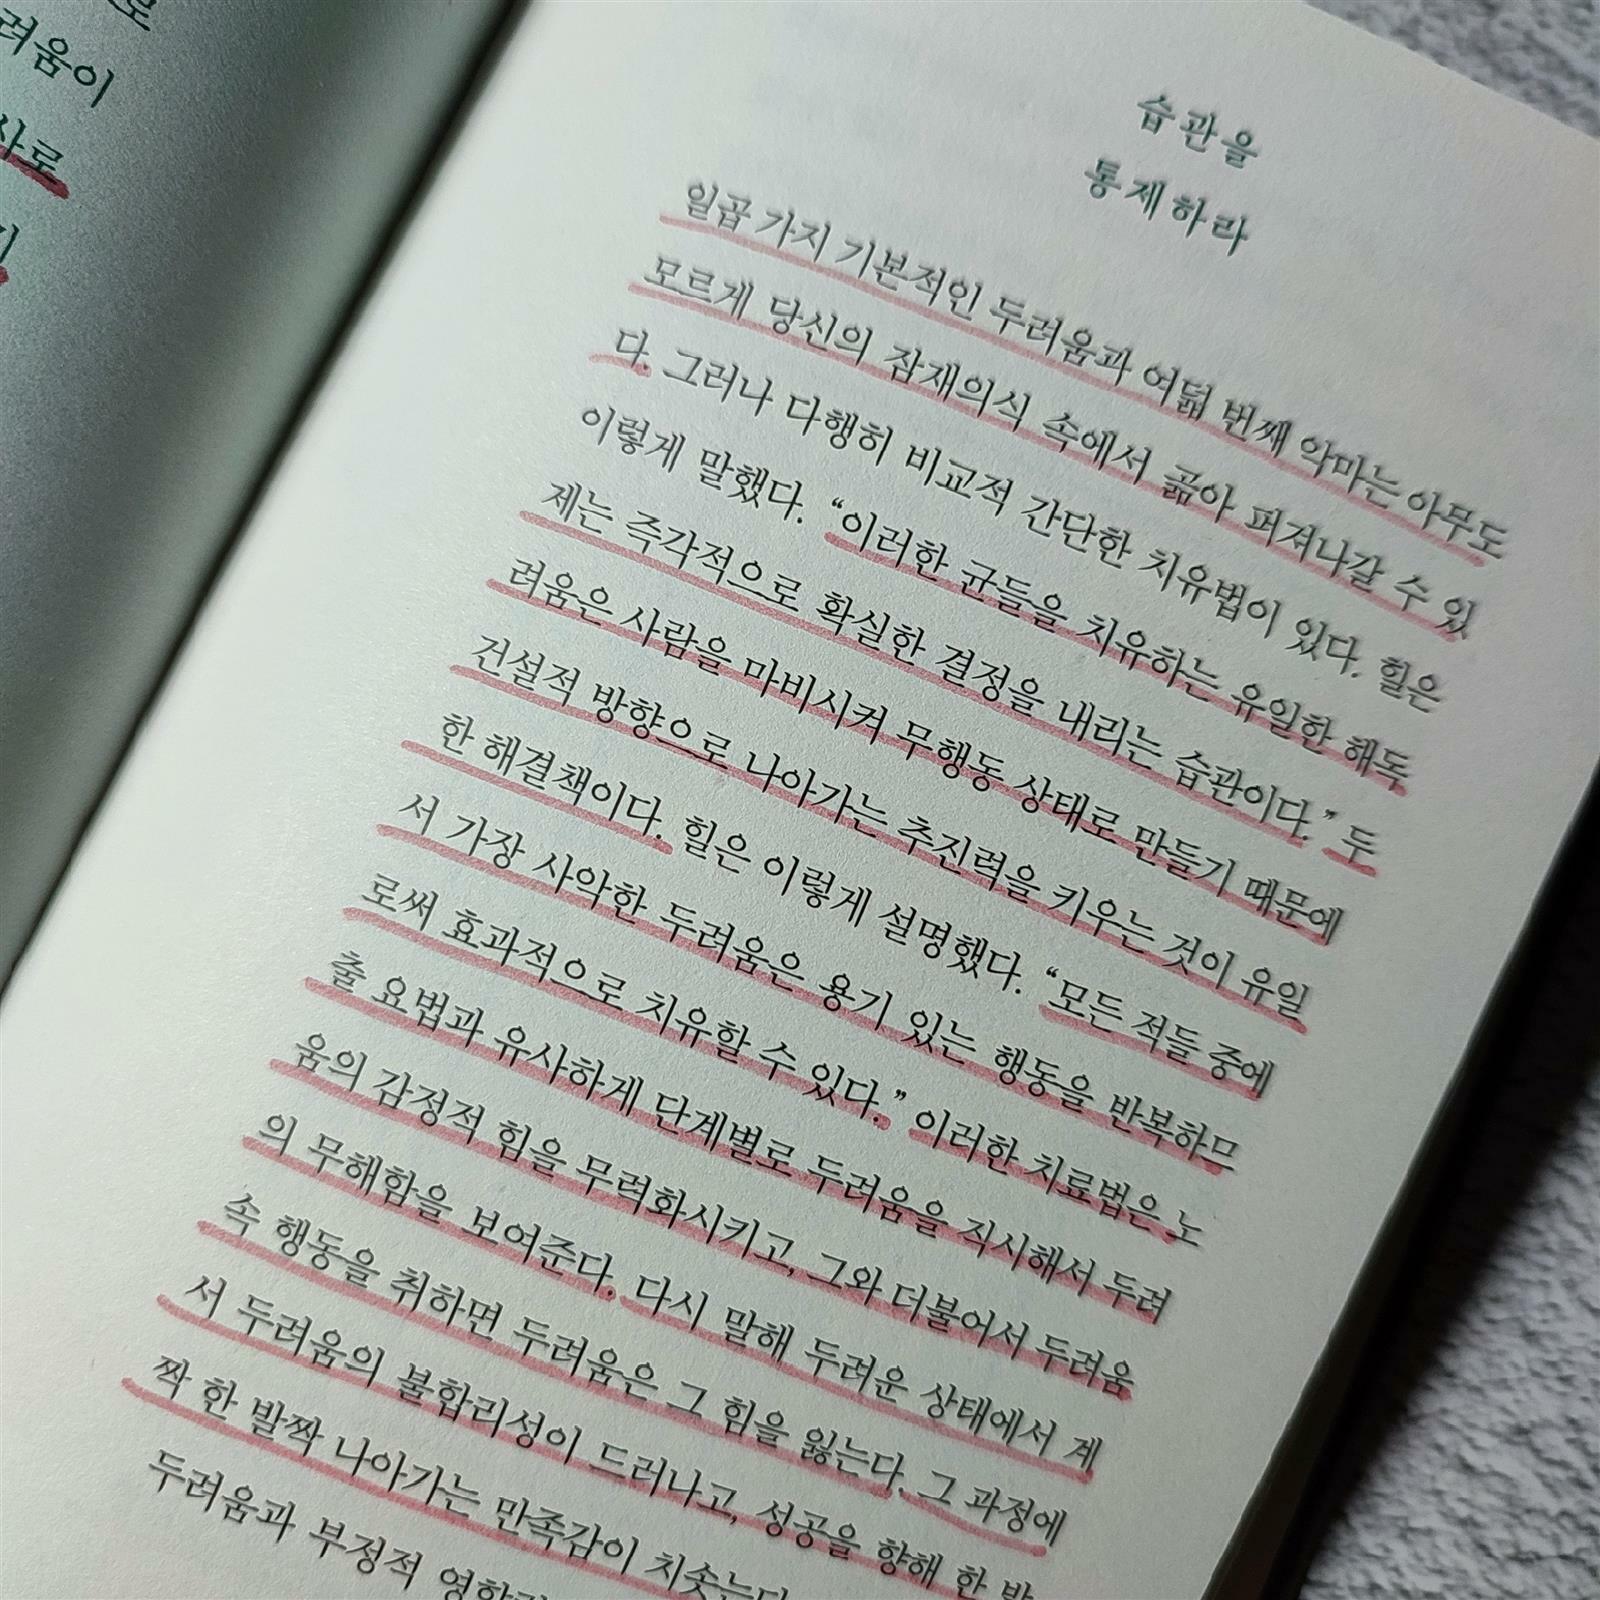 로
려움이
사로
습관을
통제하라
일곱 가지 기본적인 두려움과 여덟 번째 악마는 아무도
모르게 당신의 잠재의식 속에서 곪아 퍼져나갈 수 있
다. 그러나 다행히 비교적 간단한 치유법이 있다. 힐은
이렇게 말했다. “이러한 균들을 치유하는 유일한 해독
제는 즉각적으로 확실한 결정을 내리는 습관이다.” 두
려움은 사람을 마비시켜 무행동 상태로 만들기 때문에
건설적 방향으로 나아가는 추진력을 키우는 것이 유일
한 해결책이다. 힐은 이렇게 설명했다. “모든 적들 중에
서 가장 사악한 두려움은 용기 있는 행동을 반복하므
로써 효과적으로 치유할 수 있다.” 이러한 치료법은 노
출 요법과 유사하게 단계별로 두려움을 직시해서 두려
움의 감정적 힘을 무력화시키고, 그와 더불어서 두려움
의 무해함을 보여준다. 다시 말해 두려운 상태에서 계
속 행동을 취하면 두려움은 그 힘을 잃는다. 그 과정에
서 두려움의 불합리성이 드러나고, 성공을 향해 한 발
짝 한 발짝 나아가는 만족감이 치솟는다
두려움과 부정적